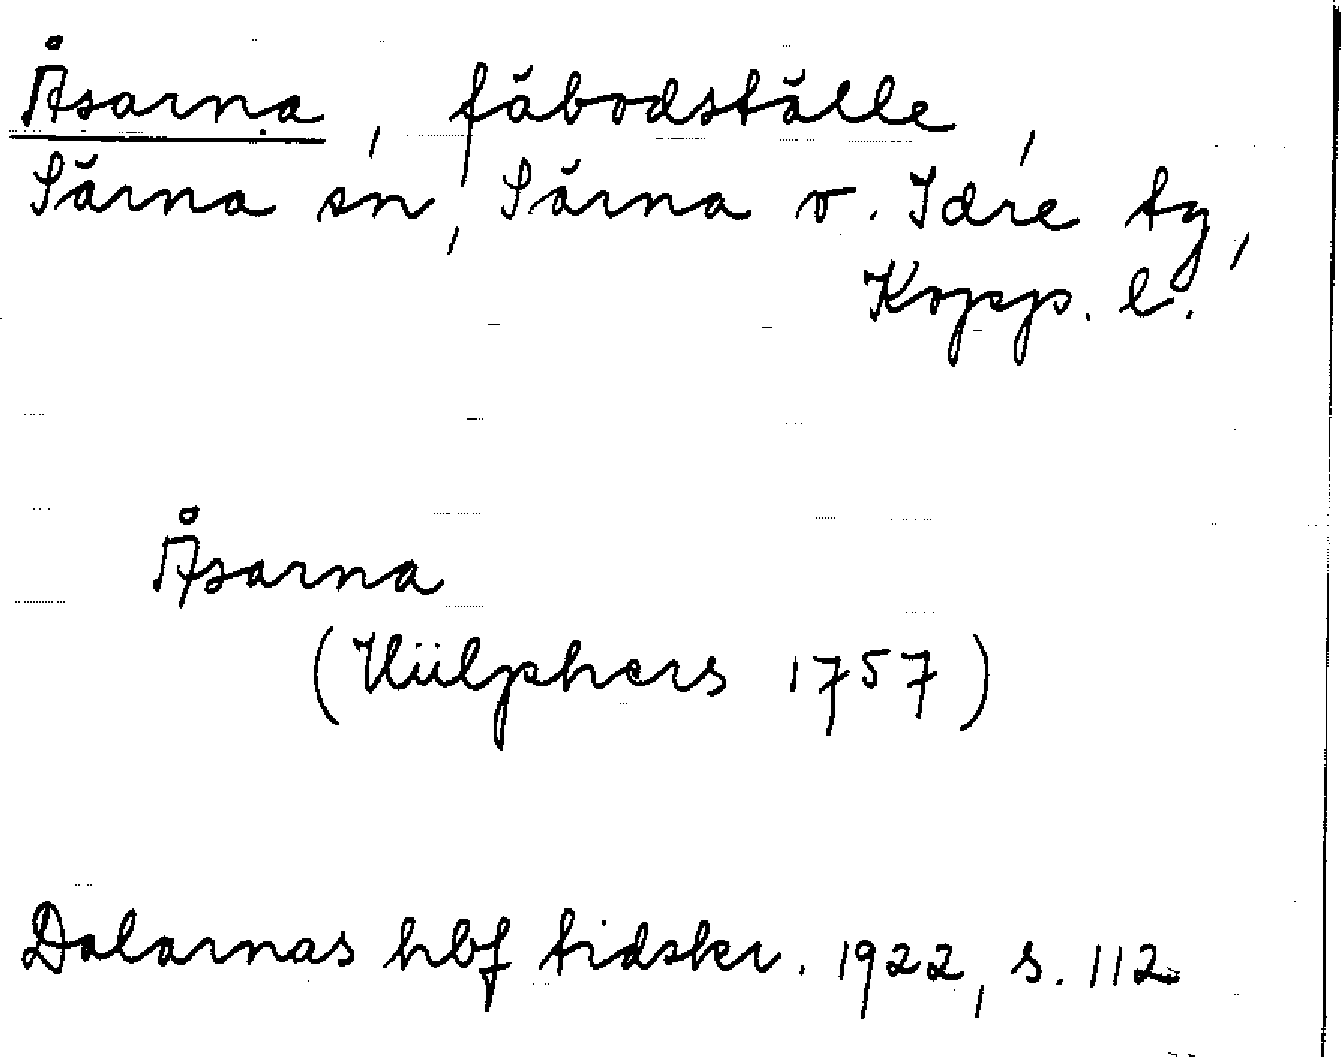 Åsarna, fäbodställe,
Särna sn, Särna o. Idre tg,
Kopp. l.
Åsarna
(Hülphers 1757)
Dalarnas hbf tidskr. 1922, s. 112